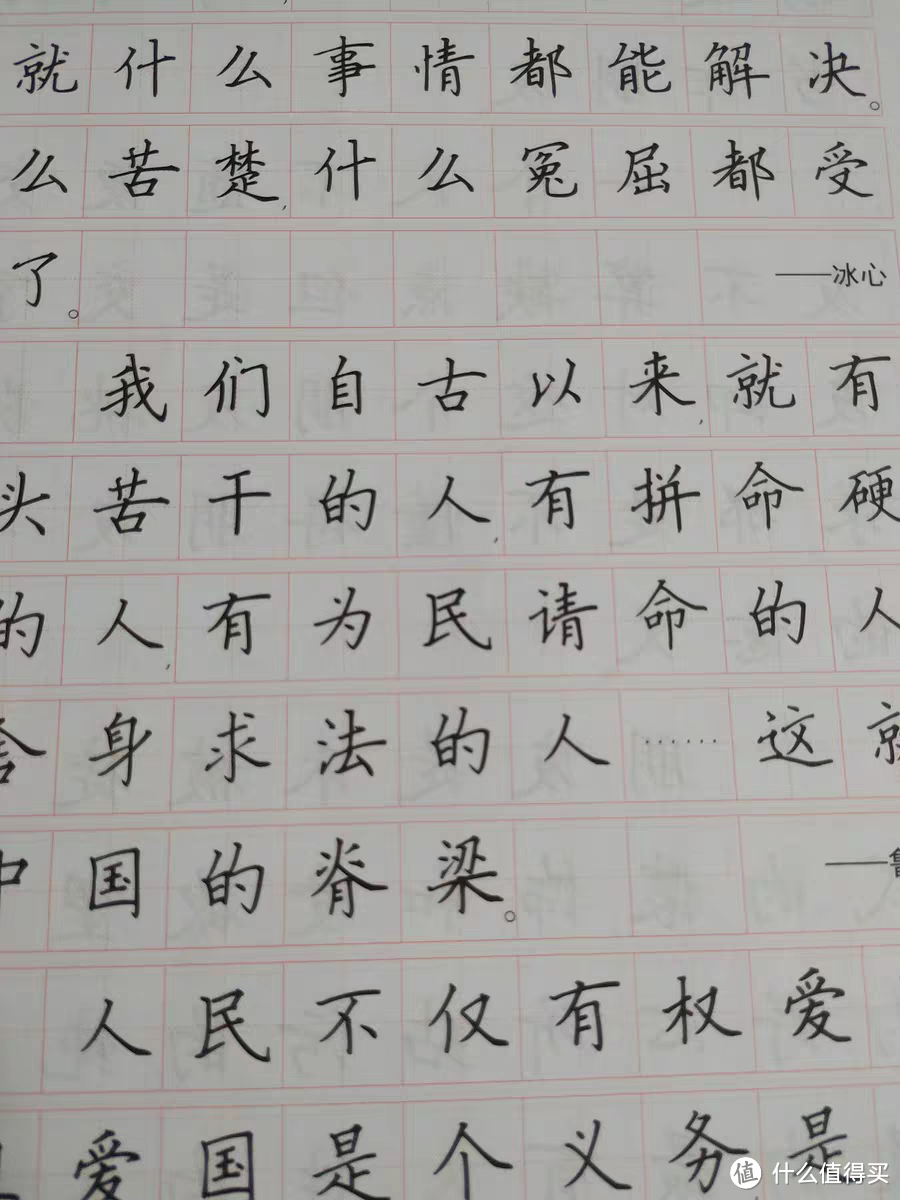 就什么事情都能解决。
么苦楚,什么冤屈都受
了。 ——冰心
我们自古以来,就有
头苦干的人,有拼命硬
的人,有为民请命的人
舍身求法的人……这就
中国的脊梁。 ——鲁
人民不仅有权爱
爱国是个义务,是
值 什么值得买